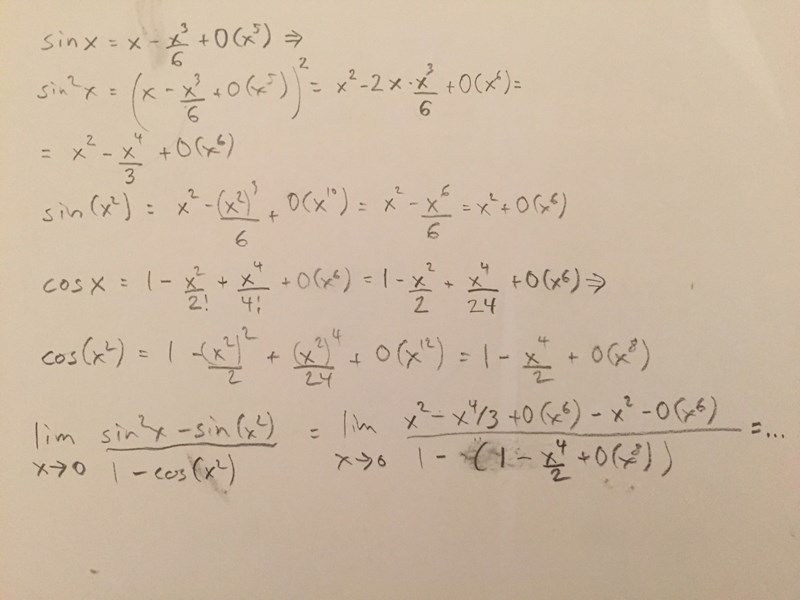 sin x = x - x³/6 + O(x⁵) ⇒
sin²x = (x - x³/6 + O(x⁵))² = x² - 2x·x³/6 + O(x⁶) =
= x² - x⁴/3 + O(x⁶)
sin(x²) = x² - (x²)³/6 + O(x¹⁰) = x² - x⁶/6 = x² + O(x⁶)
cos x = 1 - x²/2! + x⁴/4! + O(x⁶) = 1 - x²/2 + x⁴/24 + O(x⁶) ⇒
cos(x²) = 1 - (x²)²/2 + (x²)⁴/24 + O(x¹²) = 1 - x⁴/2 + O(x⁸)
lim x→0 (sin²x - sin(x²))/(1 - cos(x²)) = lim x→0 (x² - x⁴/3 + O(x⁶) - x² - O(x⁶))/(1 - (1 - x⁴/2 + O(x⁸))) = ...